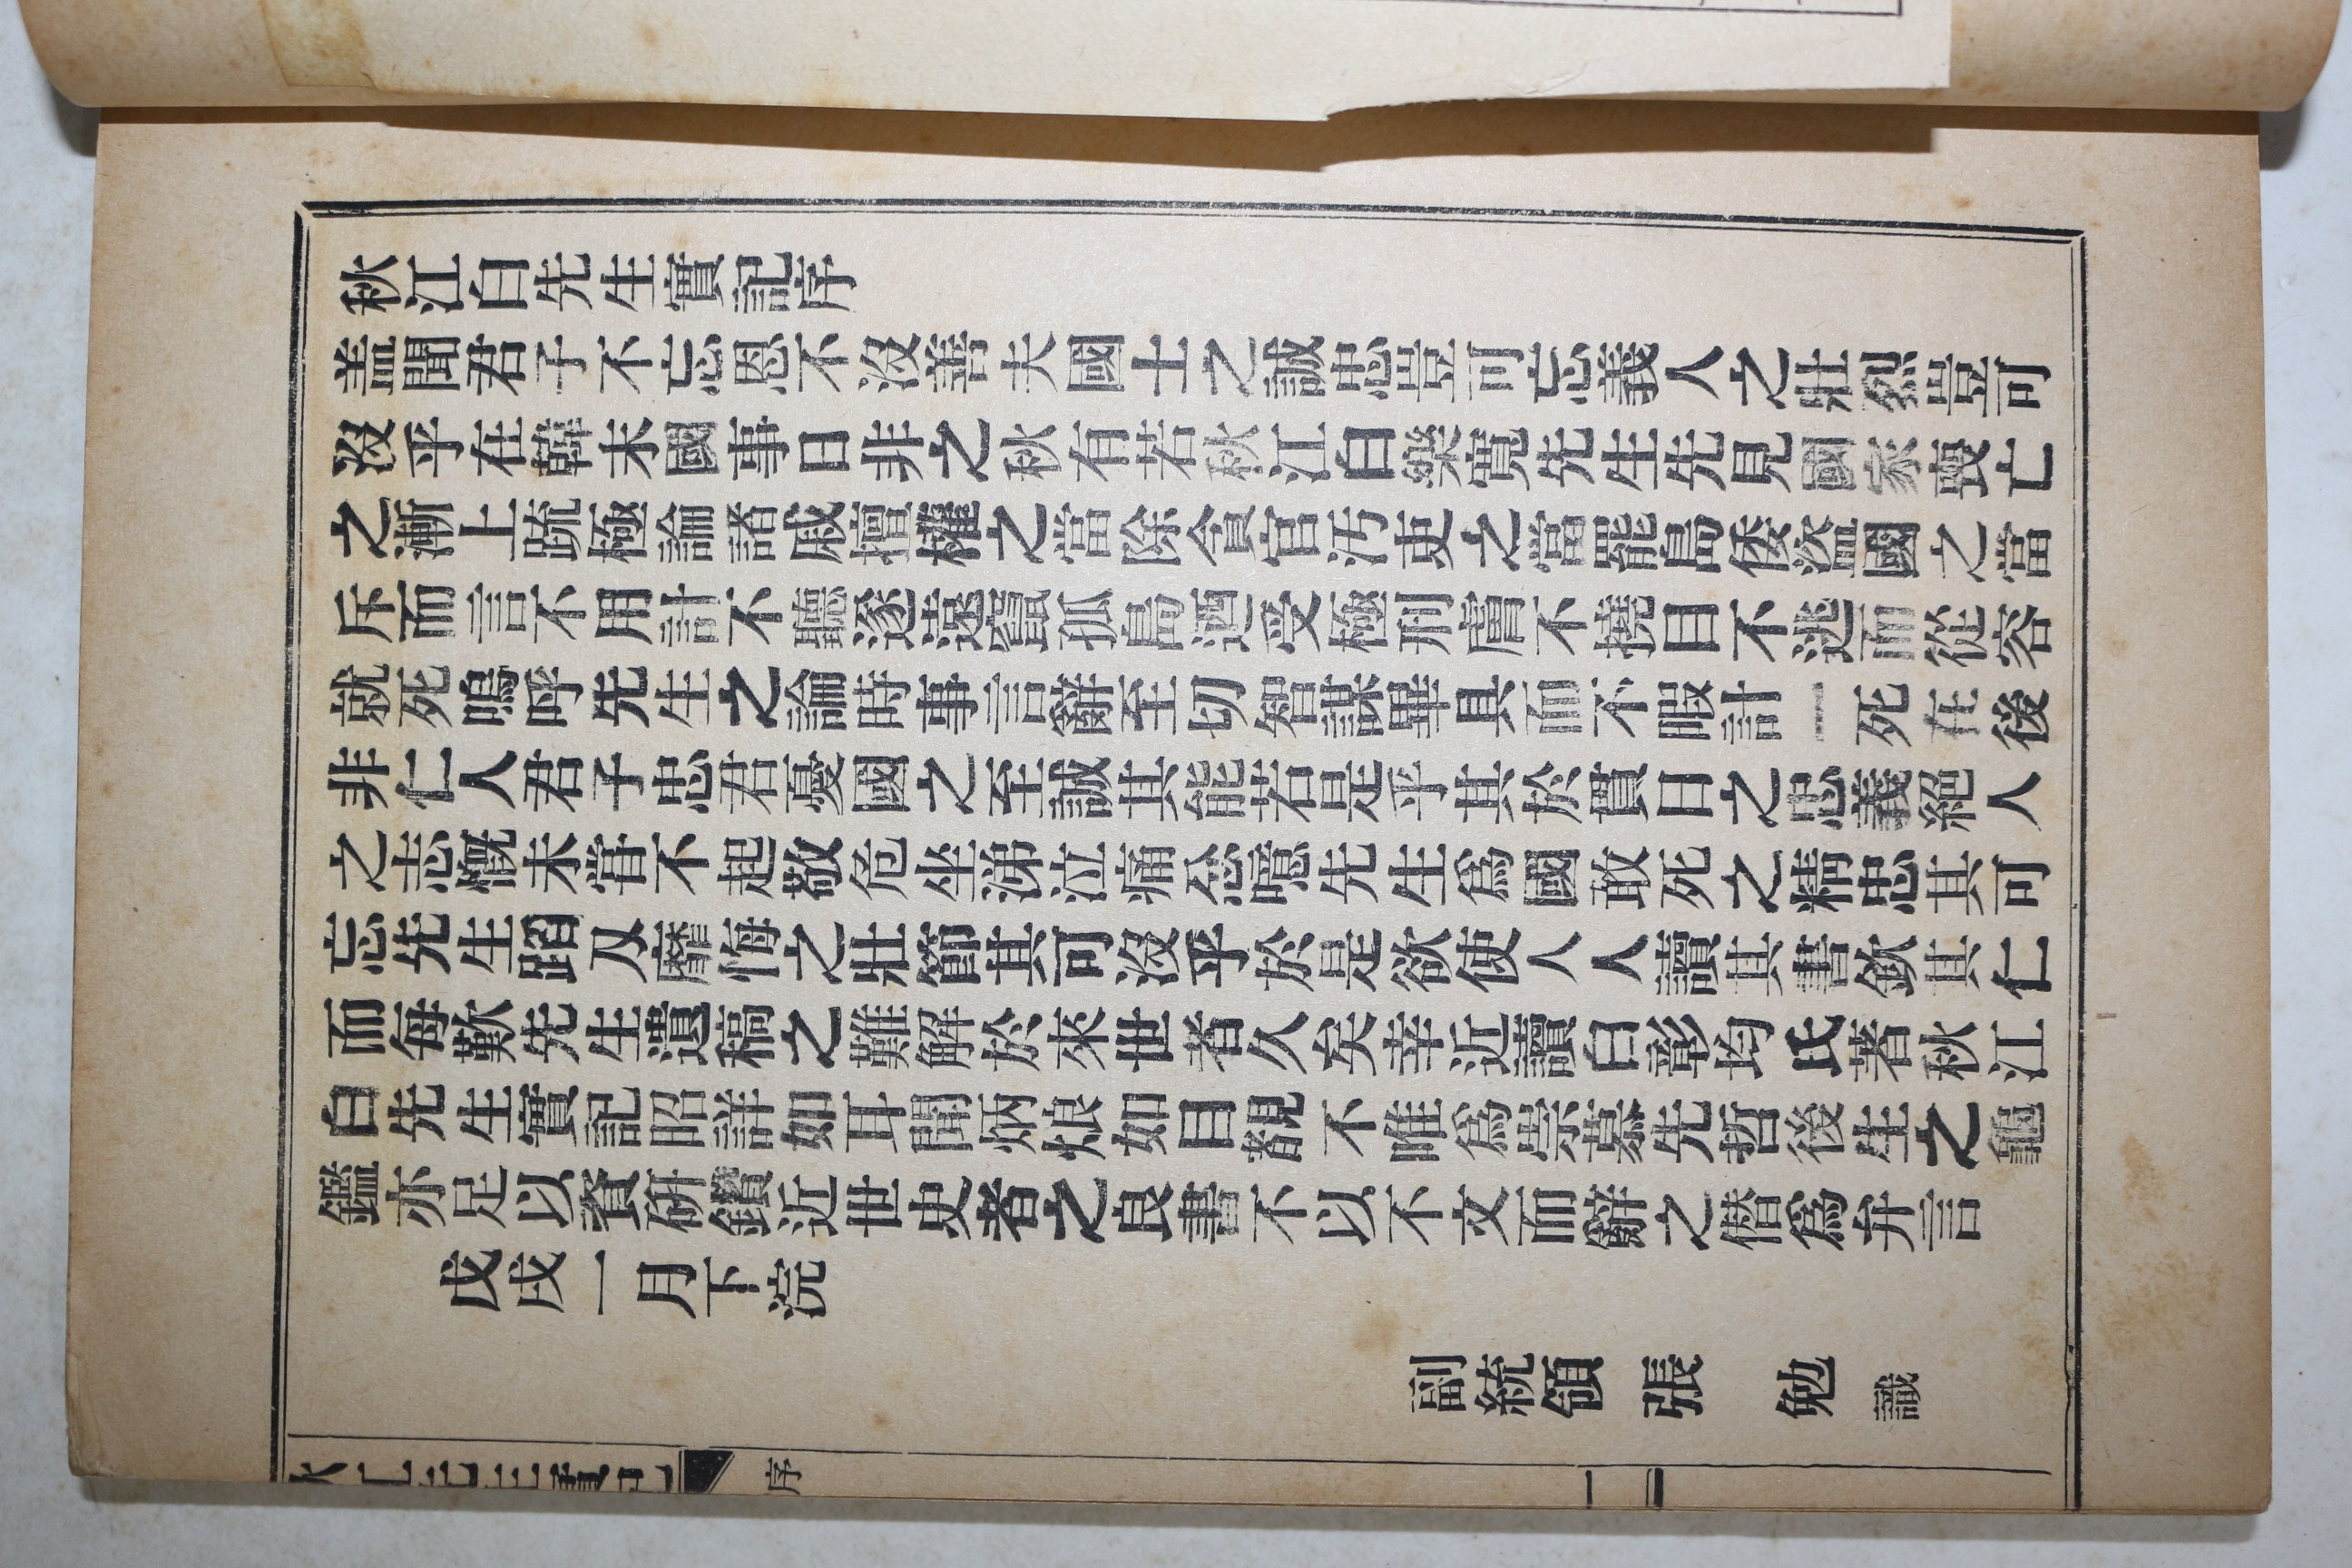 秋江白先生實記序
盖聞君子不忘恩不沒善夫國士之誠忠豈可忘義人之壯烈豈可
沒乎在韓末國事日非之秋有若秋江白樂寬先生先見國家喪亡
之漸上疏極論諸戚擅權之當除貪官汚吏之當罷島倭盜國之當
斥而言不用計不聽遂遠竄孤島迺受極刑膚不撓目不逃而從容
就死嗚呼先生之論時事言辭至切智謀畢具而不暇計一死在後
非仁人君子忠君憂國之至誠其能若是乎其於貫日之忠義絕人
之志慨未甞不起敬危坐涕泣痛忿噫先生爲國敢死之精忠其可
忘先生蹈刄靡悔之壯節其可沒乎於是欲使人人讀其書欽其仁
而每歎先生遺稿之難解於來世者久矣幸近讀白彰均氏著秋江
白先生實記昭詳如耳聞炳烺如目覩不唯爲崇慕先哲後生之龜
鑑亦足以資硏鑽近世史者之良書不以不文而辭之僭爲弁言
戊戌一月下浣
副統領 張 勉 識
秋江先生實記 序 一